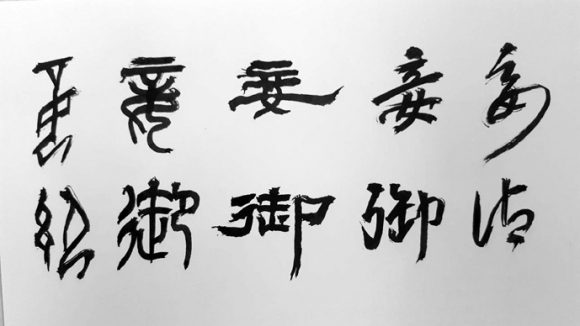 妾妾妾妾妾
御御御御御